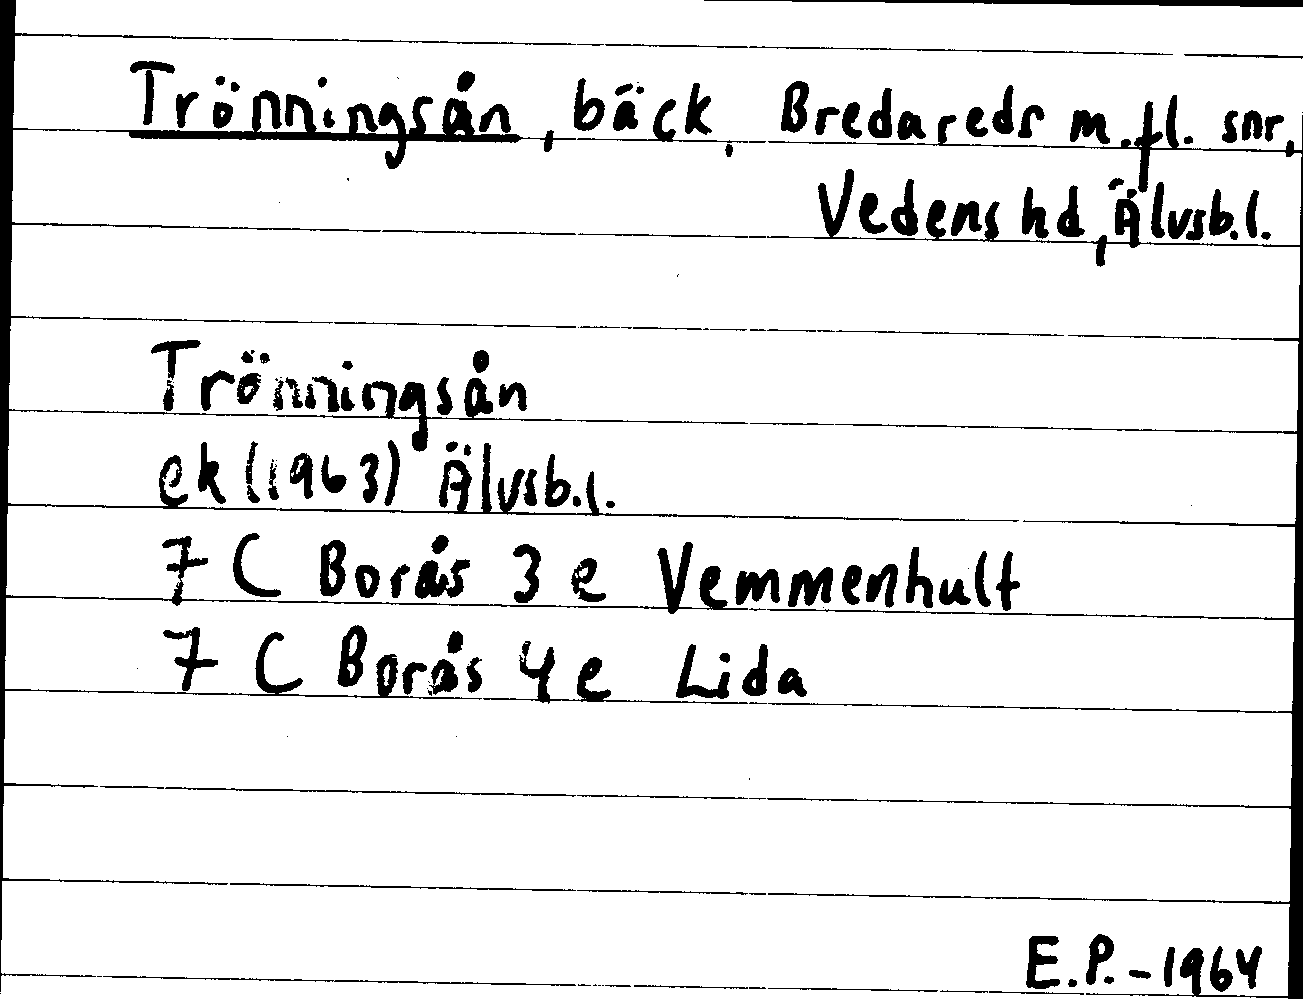 Trönningsån, bäck, Bredareds m.fl. snr,
Vedens hd, Älvsb.l.
Trönningsån
ek (1963) Älvsb.l.
7 C Borås 3 e Vemmenhult
7 C Borås 4 e Lida
E.P. - 1964